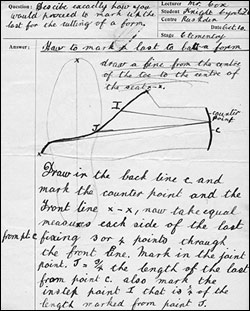 Question: Describe exactly how you
would proceed to mark up the
last for the cutting of a form.
Lecturer Mr. Cox
Student Knight
Centre Rushden
Date Oct. 10.
Stage Elementary
Answer: How to mark a last to cut a form
draw a line from the centre
of the toe to the centre of
the seat x-x.
x
I
J
counter
point
C
x
Draw in the back line C and
mark the counter point and the
front line x-x, now take equal
measures each side of the last
fixing 3 or 4 points through
the front line. Mark in the joint
point. J = the length of the last
from pt. C
from point C. also mark the
instep point I that is of the
length marked from point J.